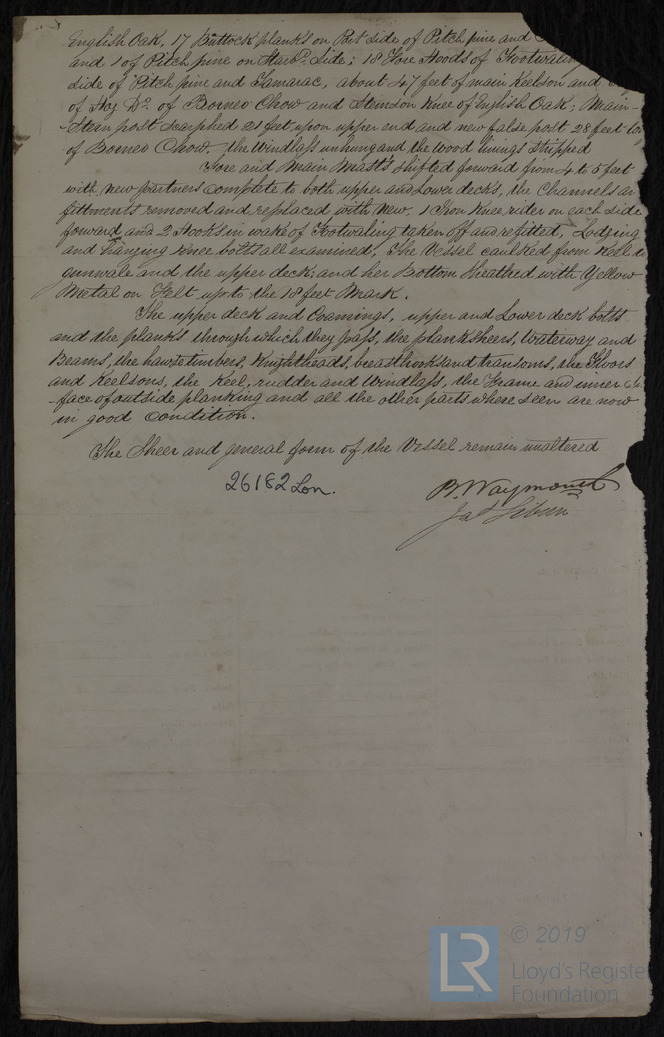 English Oak, 17 Buttock planks on Port side of Pitch pine and
and 1 of Pitch pine on Starb.d Side; 18 Fore Hoods of Footwaling
side of Pitch pine and Tamarac, about 47 feet of main Keelson and
of Hog D.o of Borneo Chow and Stemson Knee of English Oak; Main
Stern post scarphed 21 feet upon upper end and new false post 28 feet
of Borneo Chow, the Windlass unhung and the Wood linings Stripped
Fore and Main Masts shifted forward from 4 to 5 feet
with new partners complete to both upper and Lower decks, the Channels
fittments removed and replaced with New. 1 Iron Knee rider on each side
forward and 2 Hooks in wake of Footwaling taken off and refitted, Lodging
and hanging Knee bolts all examined, The Vessel caulked from Keel
gunwale and the upper deck; and her Bottom Sheathed with Yellow
Metal on Felt up to the 18 feet Mark.
The upper deck and Coamings, upper and Lower deck bolts
and the planks through which they pass, the planksheers, Waterway and
Beams, the hawse timbers, Knightheads, breasthooks and transoms, the Floors
and Keelsons, the Keel, rudder and Windlass, the Frame and inner
face of outside planking and all the other parts where seen are now
in good Condition.
The Sheer and general form of the Vessel remain unaltered
26182 Lon.
B. Waymouth
LR
© 2019
Lloyd's Register
Foundation